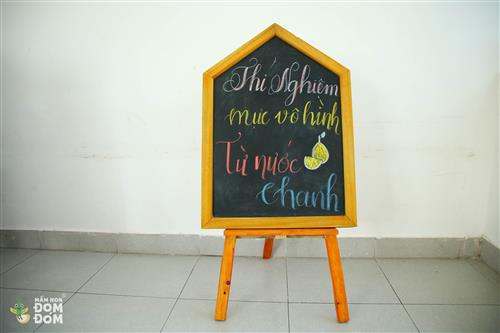 Thí Nghiệm
mực vô hình
Từ nước
chanh
MẦM NON
ĐOM
ĐÓM